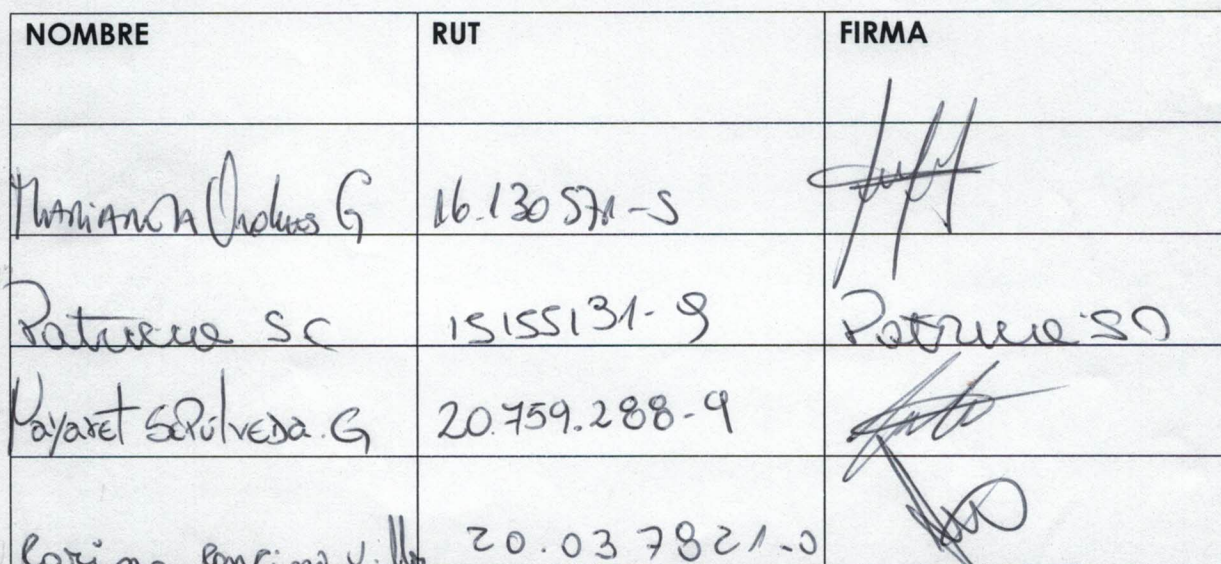 NOMBRE RUT FIRMA
MARIANA G 16.130571-5
Patricia SC 15155131-9 Patricia SO
Nayaret SePúlveDa. G 20.759.288-9
20.037821-0